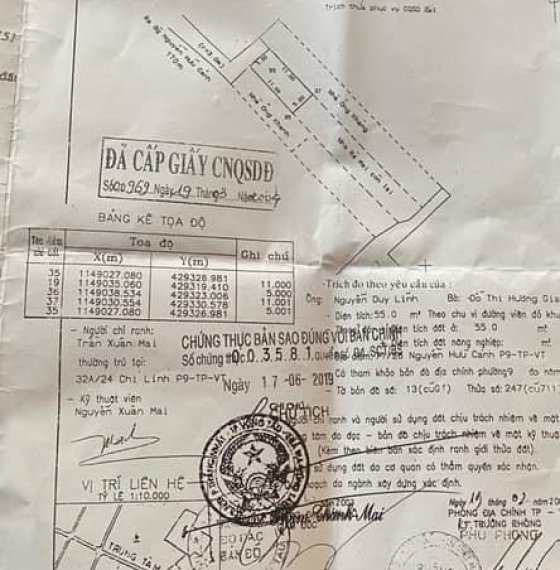 Trích thửa phục vụ CQSD đất
Đi Bộ Nguyễn Hữu Cảnh
110m
11.00
Nhà Ông Khang
ĐÃ CẤP GIẤY CNQSDĐ
969 Ngày 19 Tháng 3 Năm 2004
BẢNG KÊ TỌA ĐỘ
Toạ độ
Ghi chú
X(m) Y(m)
35 1149027.080 429326.981
19 1149035.060 429319.410 11.000
36 1149038.534 429323.006 5.000
37 1149030.554 429330.578 11.000
35 1149027.080 429326.981 5.001
-Trích đo theo yêu cầu của :
Ông: Nguyễn Duy Linh Bà: -Đỗ Thị Hương Gia
- Diện tích: 55.0 m² Theo chu vi đường viền đỏ khu
diện tích đất ở: 55.0 m²
diện tích đất nông nghiệp: m²
Nguyễn Hữu Cảnh P9-TP-VT
Có tham khảo bản địa chính phường9 đo năm
Tờ bản đồ số: 13(cũ01) Thửa số: 247(cũ711
- Người chỉ ranh:
Trần Xuân Mai
thường trú tại:
32A/24 Chí Linh P9-TP-VT
- Kỹ thuật viên
Nguyễn Xuân Mai
CHỨNG THỰC BẢN SAO ĐÚNG VỚI BẢN CHÍNH
Số chứng thực 003581 quyển số 04 SCT/BS
Ngày 17 -06- 2019
CHỦ TỊCH
chỉ ranh và người sử dụng đất chịu trách nhiệm về mặt
tâm đo đạc - bản đồ chịu trách nhiệm về mặt kỹ thuật
(Kèm theo biên bản xác định ranh giới thửa đất).
sử dụng đất do cơ quan có thẩm quyền xác nhận.
hoạch do ngành xây dựng xác định.
VỊ TRÍ LIÊN HỆ
TỶ LỆ 1:10.000
Thanh Mai
TRUNG TÂM
ĐO ĐẠC
BẢN ĐỒ
Ngày 19 tháng 02
PHÒNG ĐỊA CHÍNH TP -
KT. TRƯỞNG PHÒNG
PHÓ PHÒNG